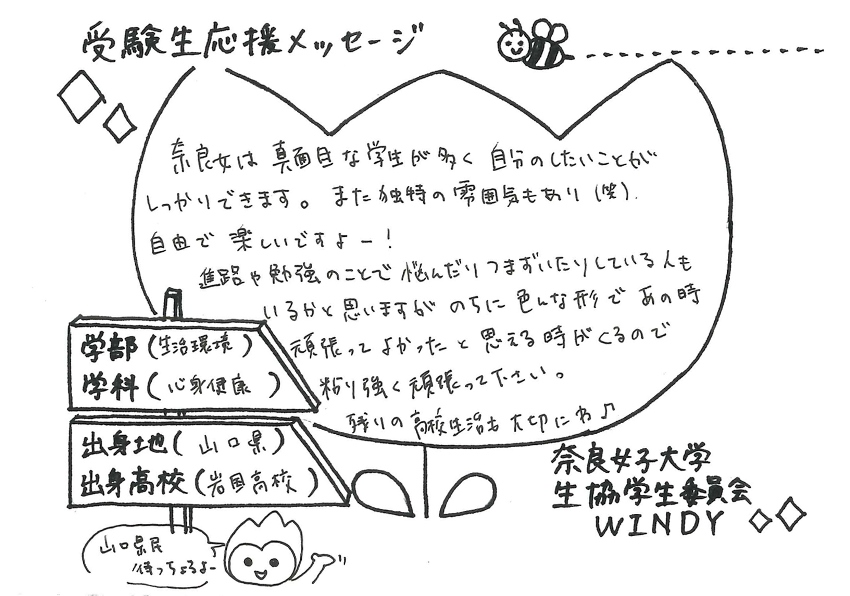 受験生応援メッセージ
奈良女は真面目な学生が多く自分のしたいことが
しっかりできます。また独特の雰囲気もあり(笑).
自由で楽しいですよー!
進路や勉強のことで悩んだりつまずいたりしている人も
いるかと思いますが のちに色んな形であの時
頑張ってよかったと思える時がくるので
粘り強く頑張って下さい。
残りの高校生活も大切にね♪
学部(生活環境)
学科(心身健康)
出身地(山口県)
出身高校(岩国高校)
山口県民
待っちょるよー
奈良女子大学
生協学生委員会
WINDY